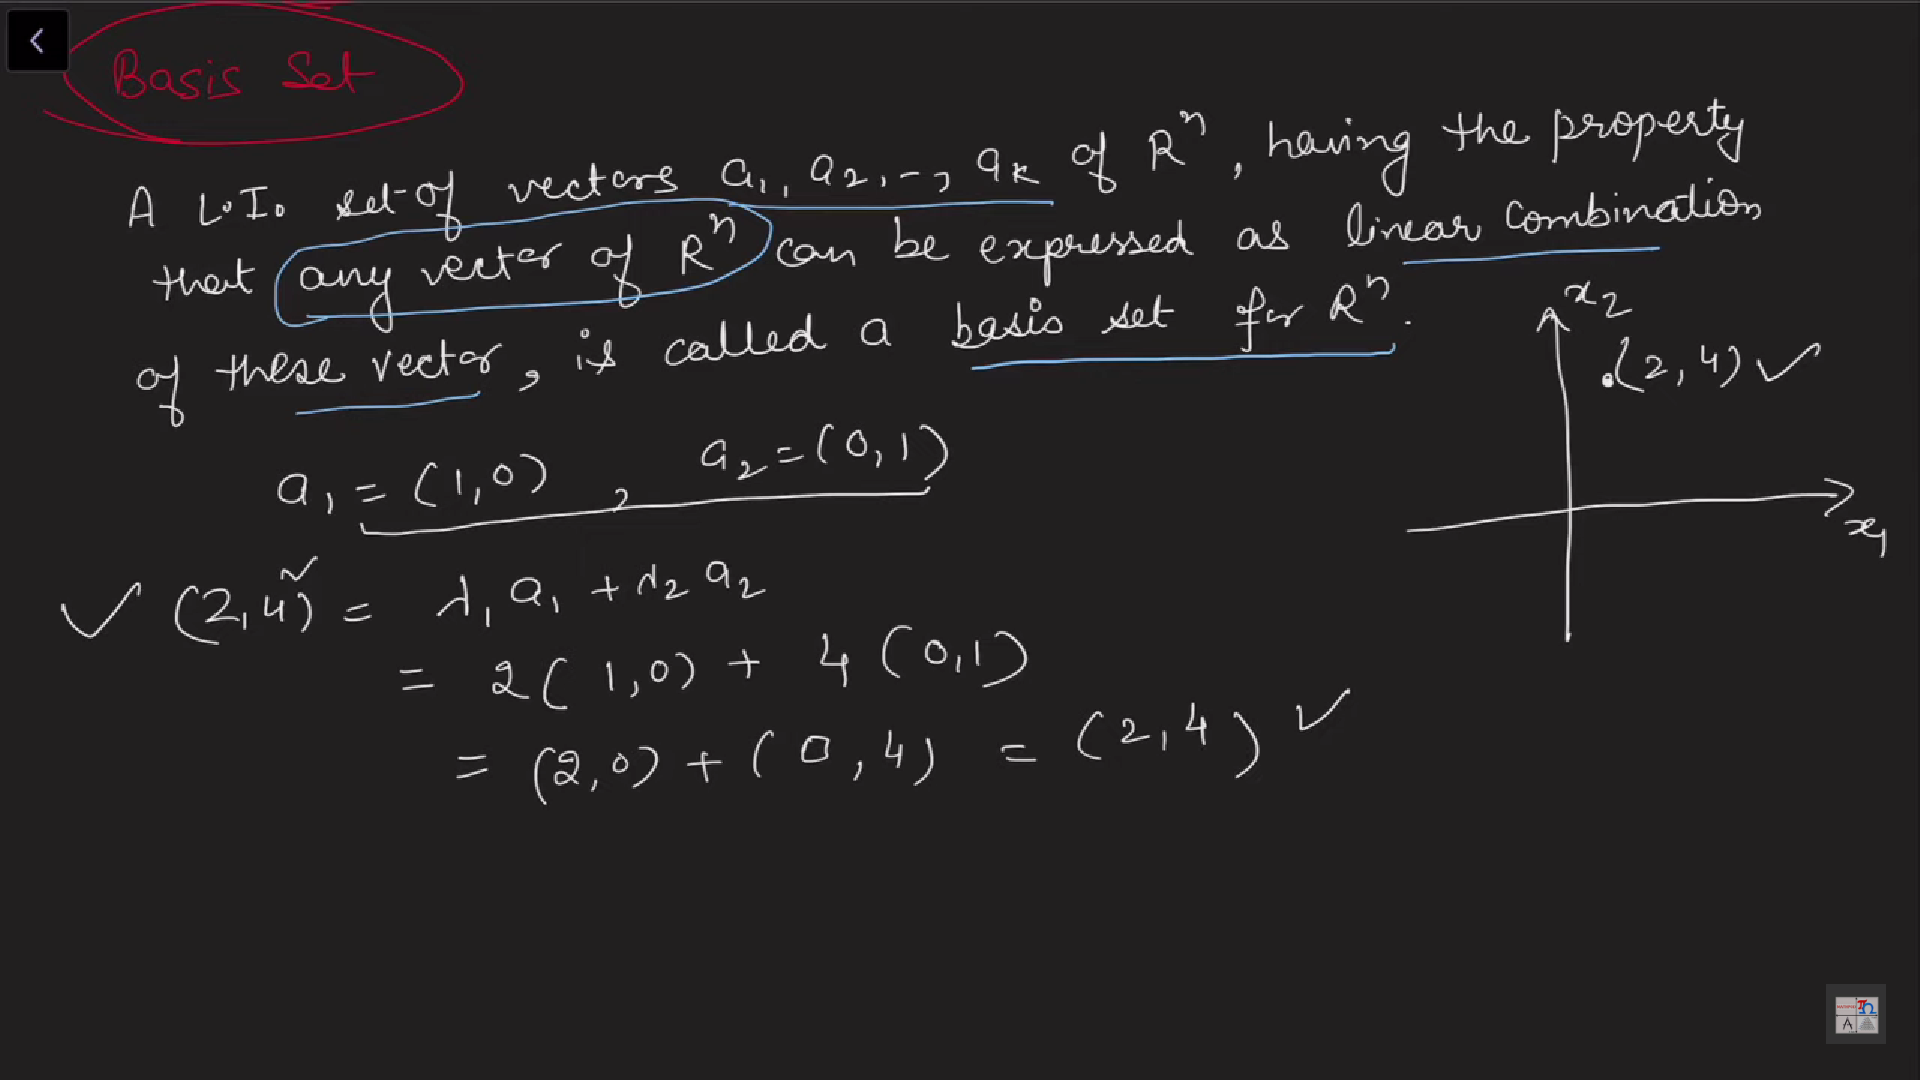 Basis Set
A L.I. set of vectors a₁, a₂, -, aₖ of Rⁿ, having the property
that any vector of Rⁿ can be expressed as linear combination
of these vector, is called a basis set for Rⁿ.
x₂
.(2,4) ✓
x₁
a₁ = (1,0) , a₂ = (0,1)
✓ (2,4) = λ₁ a₁ + λ₂ a₂
= 2(1,0) + 4(0,1)
= (2,0) + (0,4) = (2,4) ✓